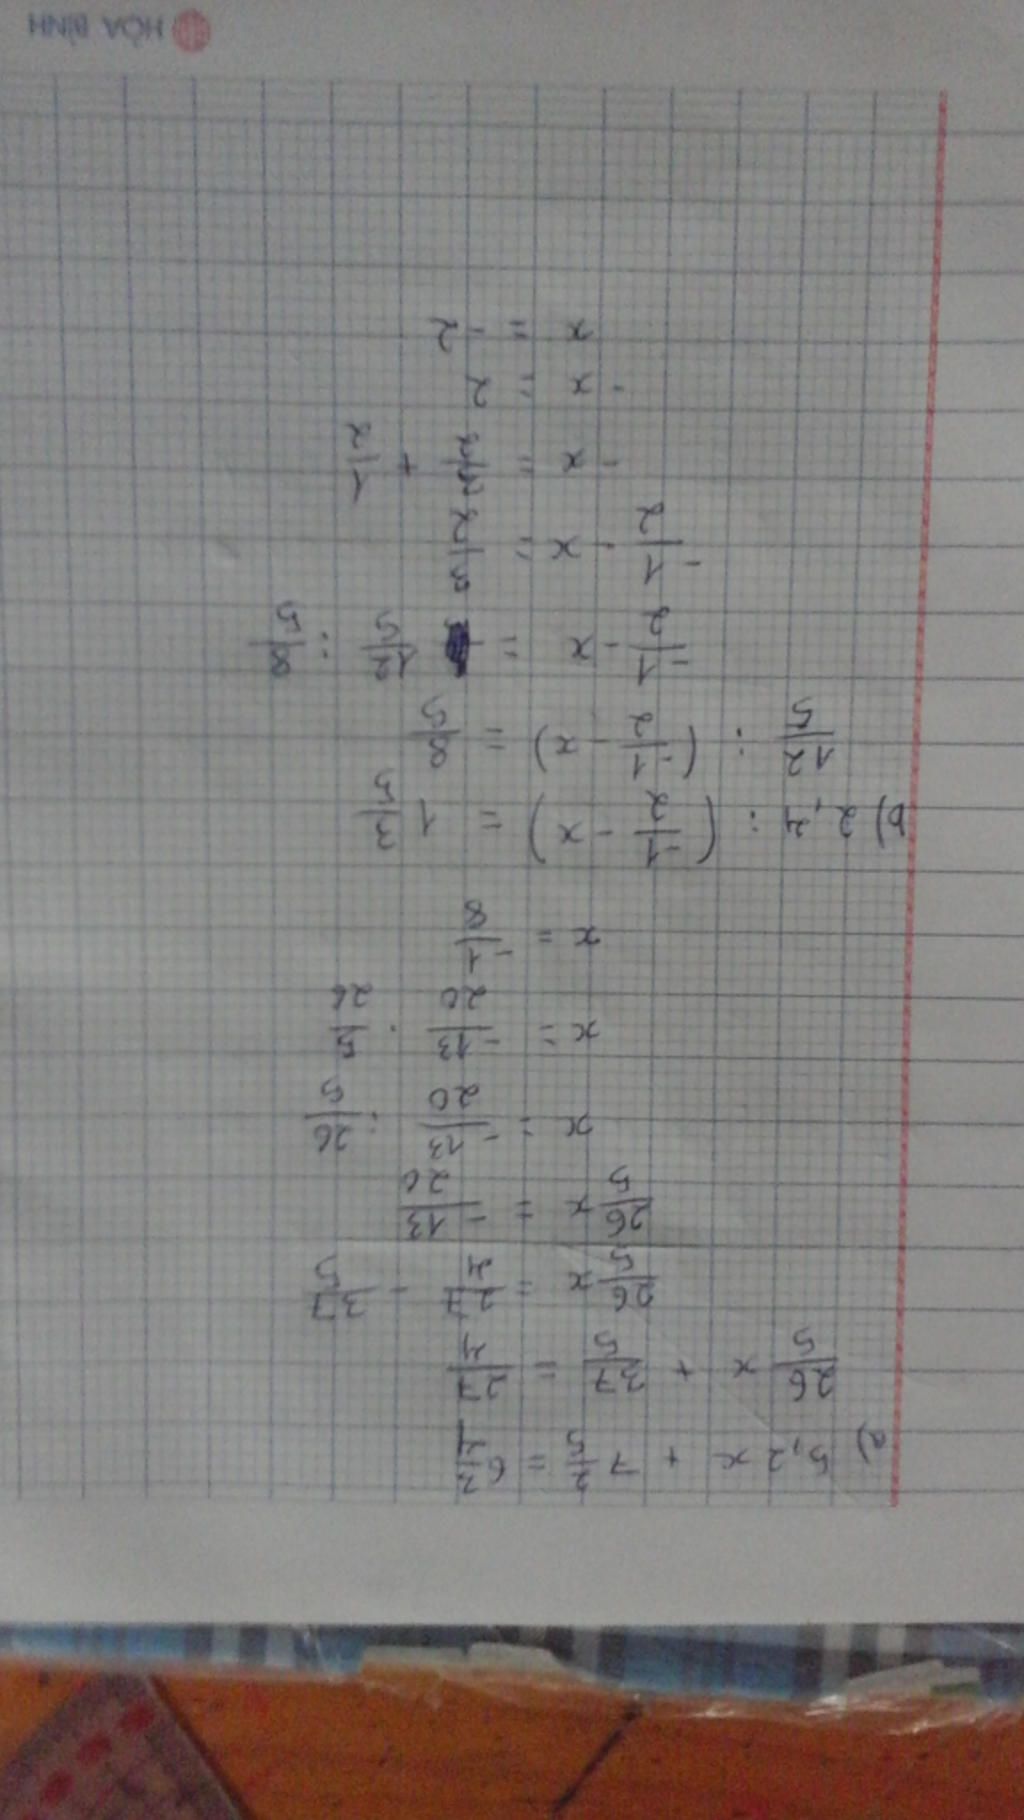 a) 5,2 x + 7 2/5 = 6 3/4
26/5 x + 37/5 = 27/4
26/5 x = 27/4 - 37/5
26/5 x = -13/20
x = -13/20 : 26/5
x = -13/20 . 5/26
x = -1/8
b) 2,4 : (-1/2 - x) = 1 3/5
12/5 : (-1/2 - x) = 8/5
-1/2 - x = 12/5 : 8/5
-1/2 - x = 3/2
- x = 3/2 + 1/2
- x = 2
x = -2
HÒA BÌNH